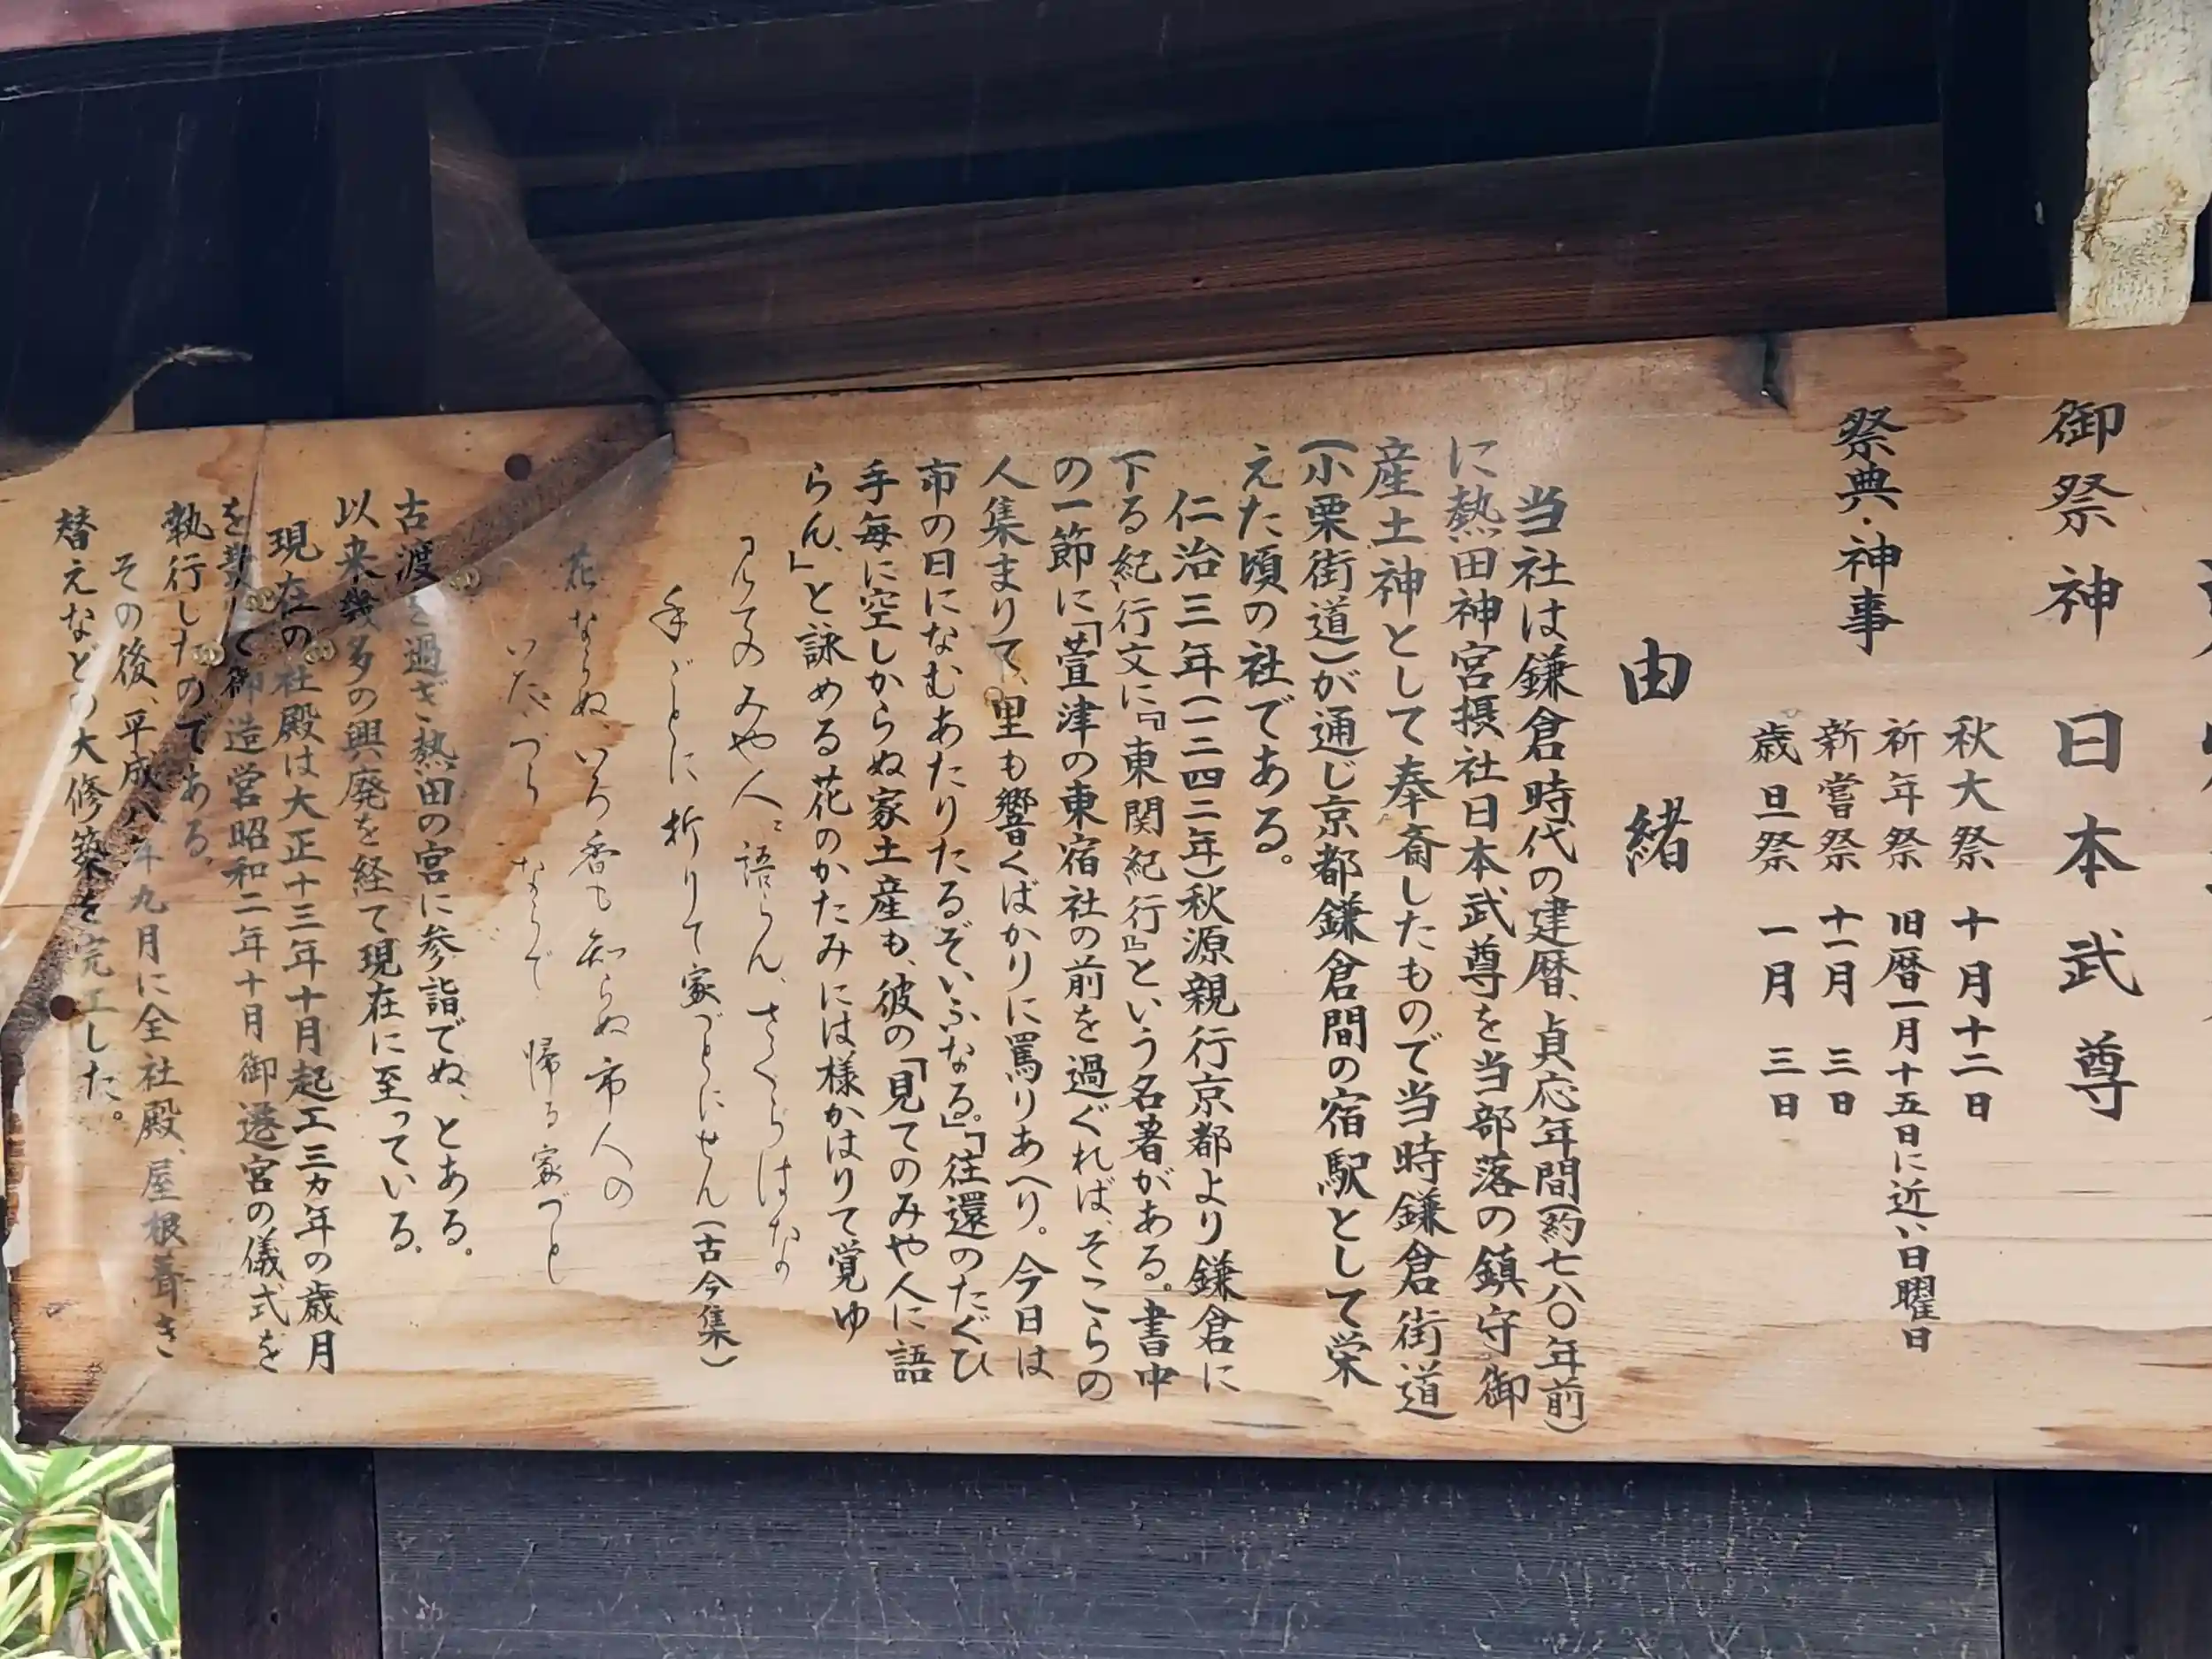 御祭神 日本武尊
祭典・神事
秋大祭 十月十二日
祈年祭 旧暦一月十五日に近い日曜日
新嘗祭 十一月 三日
歳旦祭 一月 三日
由緒
当社は鎌倉時代の建暦、貞応年間(約七八〇年前)
に熱田神宮摂社日本武尊を当部落の鎮守御
産土神として奉斎したもので当時鎌倉街道
(小栗街道)が通じ京都鎌倉間の宿駅として栄
えた頃の社である。
仁治三年(一二四二年)秋源親行京都より鎌倉に
下る紀行文に『東関紀行』という名著がある。書中
の一節に「萱津の東宿社の前を過ぐれば、そこらの
人集まりて、里も響くばかりに罵りあへり。今日は
市の日になむあたりたるぞいふなる。」「往還のたぐひ
手毎に空しからぬ家土産も、彼の「見てのみや人に語
らん、」と詠める花のかたみには様かはりて覚ゆ
見てのみや人に語らん、さくらはな
手ごとに折りて家づとにせん(古今集)
花ならぬ、いろ香も知らぬ市人の
いたづらならで帰る家づと
古渡を過ぎ、熱田の宮に参詣でぬ、とある。
以来幾多の興廃を経て現在に至っている。
現在の社殿は大正十三年十月起工三ヵ年の歳月
を費して御造営昭和二年十月御遷宮の儀式を
執行したのである。
その後、平成八年九月に全社殿、屋根葺き
替えなどの大修築を完工した。